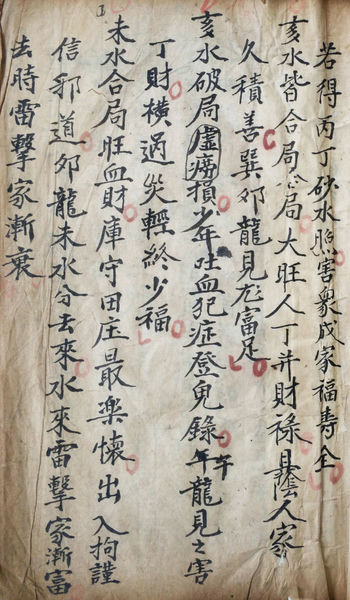 若得丙丁砂水照害众成家福寿全
亥水皆合局公局大旺人丁并財禄且蔭人家
久積善巽夘龍見尨富足
亥水破局虚痨損少年吐血犯症登鬼錄午年龍見之害
丁財横过災輕終少福
未水合局旺血財庫守田庄最楽懷出入拘謹
信邪道夘龍未水分去來水來雷擊家漸富
去時雷擊家漸衰